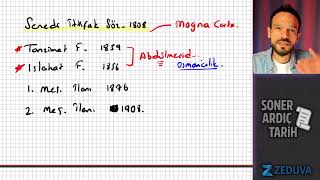 Senedi İttifak Söz. 1808 → Magna Carta.
* Tanzimat F. 1839
* Islahat F. 1856
Abdülmecid
Osmanlıcılık
1. Meş. İlanı 1876
2. Meş. İlanı 1908.
SONER
ARDIÇ
TARİH
ZEDUVA